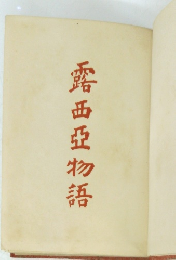 露西亞物語